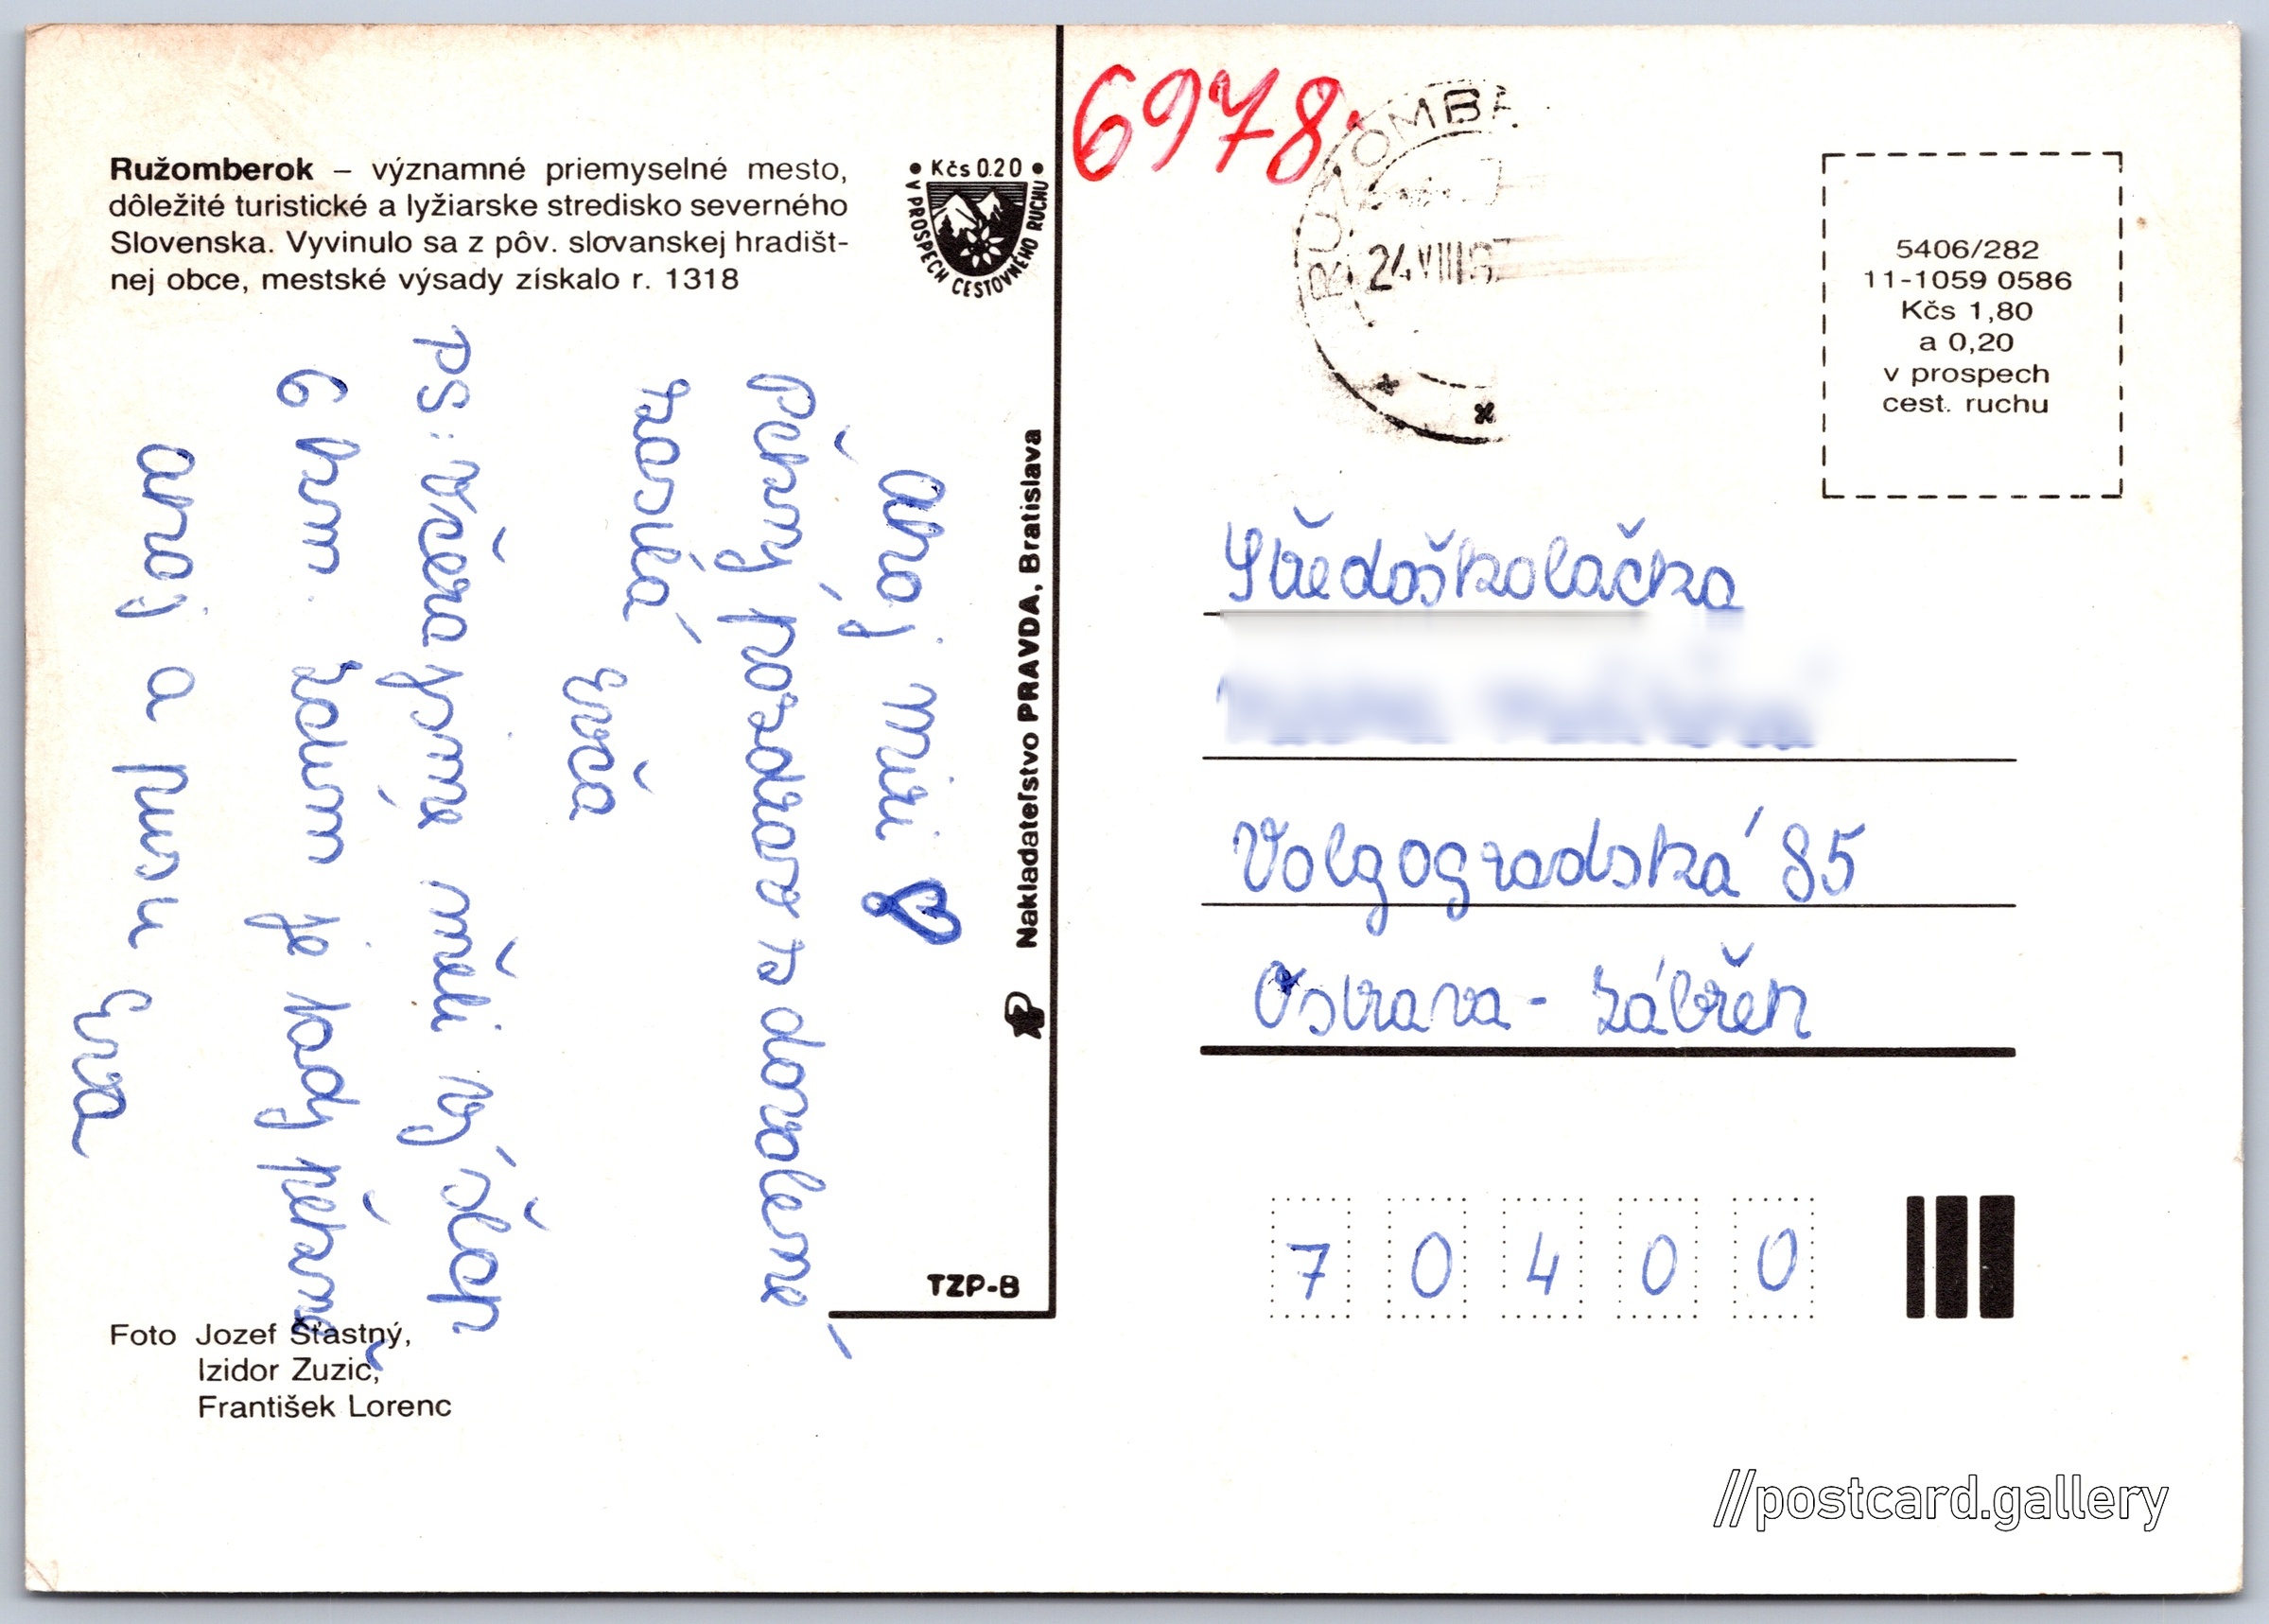 Ružomberok – významné priemyselné mesto,
dôležité turistické a lyžiarske stredisko severného
Slovenska. Vyvinulo sa z pôv. slovanskej hradišt-
nej obce, mestské výsady získalo r. 1318
• Kčs 0.20 •
V PROSPECH CESTOVNÉHO RUCHU
Ahoj Miri
Pěkný pozdrav z dovolené
zasílá
Evča
PS: Včera jsme měli výšlap
6 hm. Jdum je tady pěkně
ahoj a pusu Eva
Nakladateľstvo PRAVDA, Bratislava
TZP-B
Foto Jozef Šťastný,
Izidor Zuzic,
František Lorenc
6978.
RUŽOMBE
24.VIII.8
5406/282
11-1059 0586
Kčs 1,80
a 0,20
v prospech
cest. ruchu
Středoškolačka
Volgogradská 85
Ostrava - Zábřeh
7 0 4 0 0
//postcard.gallery